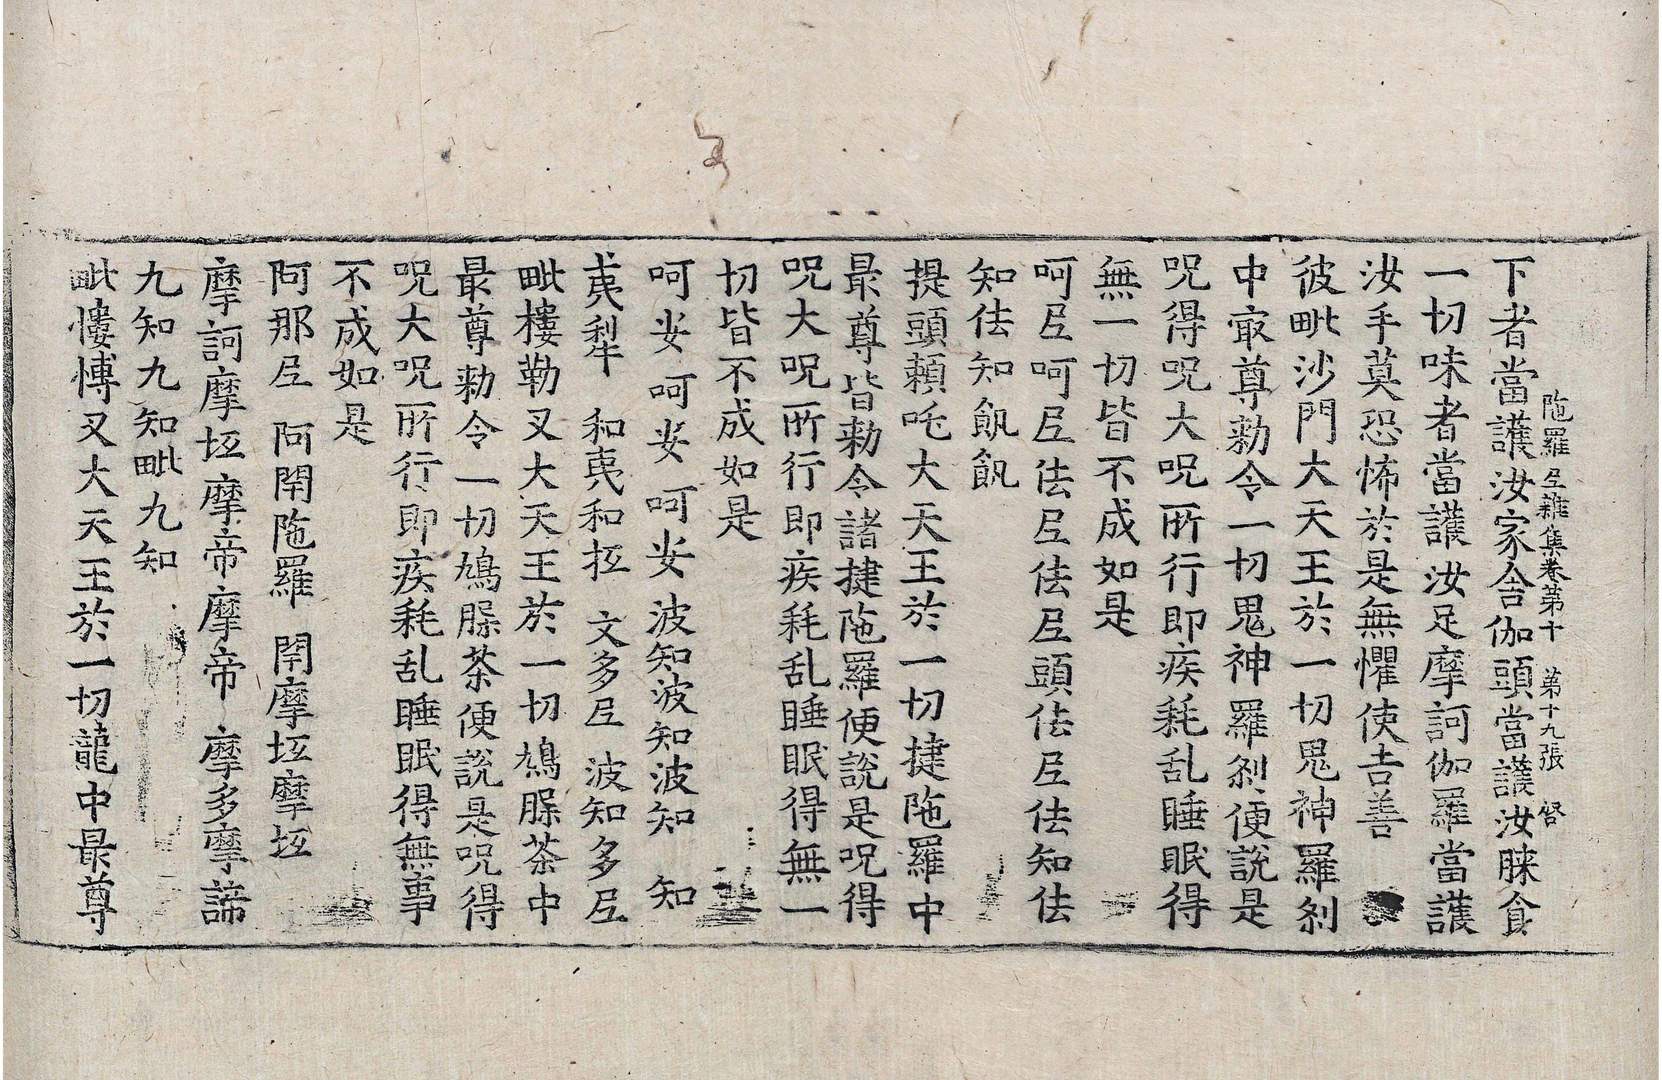 陁羅𡰱雜集卷第十　第十九張　督
下者當護汝家舍伽頭當護汝脒食
一切味者當護汝足摩訶伽羅當護
汝手莫恐怖於是無懼使吉善
彼毗沙門大天王於一切鬼神羅剎
中㝡尊勑令一切鬼神羅剎便說是
呪得呪大呪所行即疾耗乱睡眠得
無一切皆不成如是
呵𡰱呵𡰱佉𡰱佉𡰱頭佉𡰱佉知佉
知佉知飢飢
提頭頼吒大天王於一切揵陁羅中
最尊皆勑令諸揵陁羅便說是呪得
呪大呪所行即疾耗乱睡眠得無一
切皆不成如是
呵㚢呵㚢呵㚢波知波知波知　知
夷犁　和夷和抂　文多𡰱　波知多𡰱
毗樓勒叉大天王於一切鳩脲荼中
最尊勑令一切鳩脲荼便說是呪得
呪大呪所行即疾耗乱睡眠得無事
不成如是
阿那𡰱　阿閇陁羅　閇摩坘摩坘
摩訶摩坘摩帝摩帝　摩多摩諦
九知九知毗九知
毗慺愽叉大天王於一切龍中最尊